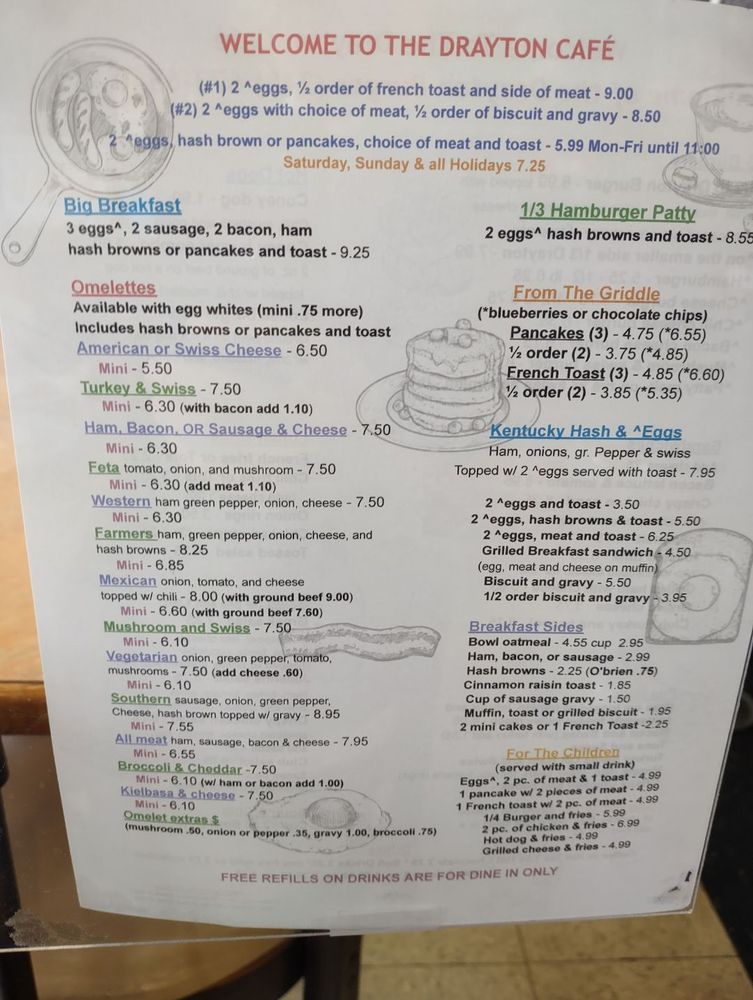 WELCOME TO THE DRAYTON CAFÉ
(#1) 2 ^eggs, ½ order of french toast and side of meat - 9.00
(#2) 2 ^eggs with choice of meat, ½ order of biscuit and gravy - 8.50
2 ^eggs, hash brown or pancakes, choice of meat and toast - 5.99 Mon-Fri until 11:00
Saturday, Sunday & all Holidays 7.25
Big Breakfast
3 eggs^, 2 sausage, 2 bacon, ham
hash browns or pancakes and toast - 9.25
Omelettes
Available with egg whites (mini .75 more)
Includes hash browns or pancakes and toast
American or Swiss Cheese - 6.50
Mini - 5.50
Turkey & Swiss - 7.50
Mini - 6.30 (with bacon add 1.10)
Ham, Bacon, OR Sausage & Cheese - 7.50
Mini - 6.30
Feta tomato, onion, and mushroom - 7.50
Mini - 6.30 (add meat 1.10)
Western ham green pepper, onion, cheese - 7.50
Mini - 6.30
Farmers ham, green pepper, onion, cheese, and
hash browns - 8.25
Mini - 6.85
Mexican onion, tomato, and cheese
topped w/ chili - 8.00 (with ground beef 9.00)
Mini - 6.60 (with ground beef 7.60)
Mushroom and Swiss - 7.50
Mini - 6.10
Vegetarian onion, green pepper, tomato,
mushrooms - 7.50 (add cheese .60)
Mini - 6.10
Southern sausage, onion, green pepper,
Cheese, hash brown topped w/ gravy - 8.95
Mini - 7.55
All meat ham, sausage, bacon & cheese - 7.95
Mini - 6.55
Broccoli & Cheddar -7.50
Mini - 6.10 (w/ ham or bacon add 1.00)
Kielbasa & cheese - 7.50
Mini - 6.10
Omelet extras $
(mushroom .50, onion or pepper .35, gravy 1.00, broccoli .75)
1/3 Hamburger Patty
2 eggs^ hash browns and toast - 8.55
From The Griddle
(*blueberries or chocolate chips)
Pancakes (3) - 4.75 (*6.55)
½ order (2) - 3.75 (*4.85)
French Toast (3) - 4.85 (*6.60)
½ order (2) - 3.85 (*5.35)
Kentucky Hash & ^Eggs
Ham, onions, gr. Pepper & swiss
Topped w/ 2 ^eggs served with toast - 7.95
2 ^eggs and toast - 3.50
2 ^eggs, hash browns & toast - 5.50
2 ^eggs, meat and toast - 6.25
Grilled Breakfast sandwich - 4.50
(egg, meat and cheese on muffin)
Biscuit and gravy - 5.50
1/2 order biscuit and gravy - 3.95
Breakfast Sides
Bowl oatmeal - 4.55 cup 2.95
Ham, bacon, or sausage - 2.99
Hash browns - 2.25 (O'brien .75)
Cinnamon raisin toast - 1.85
Cup of sausage gravy - 1.50
Muffin, toast or grilled biscuit - 1.95
2 mini cakes or 1 French Toast -2.25
For The Children
(served with small drink)
Eggs^, 2 pc. of meat & 1 toast - 4.99
1 pancake w/ 2 pieces of meat - 4.99
1 French toast w/ 2 pc. of meat - 4.99
1/4 Burger and fries - 5.99
2 pc. of chicken & fries - 6.99
Hot dog & fries - 4.99
Grilled cheese & fries - 4.99
FREE REFILLS ON DRINKS ARE FOR DINE IN ONLY